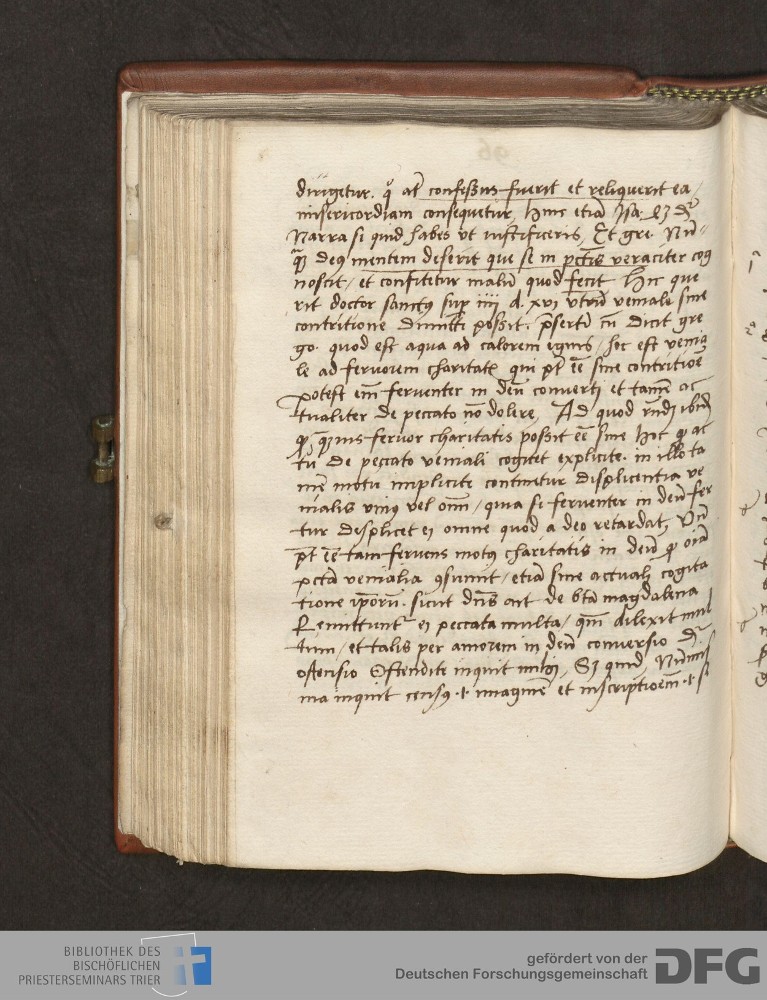 dirigetur. q̊ at̃ confessus fuerit et reliquerit ea /
misericordiam consequetur, hinc etiã Isa.
Narra si quid habes ut iustificeris, Et gre. Nũ-
deus mentem deserit que se in pctĩs veraciter cog
noscit / et confitetur malũ quod fecit Hic que
rit doctor sanctus sup iiii d. xvi utrũ veniale sine
contritione dimitti possit. p̃sertĩ cũ dicit gre
go. quod est aqua ad calorem ignis / hoc est venia
le ad fervorem charitatis qui pt̃ eẽ sine contritiõe
potest eñi ferventer in deũ converti et tamẽ ac
tualiter de peccato nõ dolere, Ad quod
fervor charitatis possit eẽ sine hoc qp ac
tũ de peccato veniali cogitet explicite. in illo ta
mẽ motu implicite continetur displicentia ve
nialis unius vel oĩm / quia si ferventer in deũ fer
tur displicet ei omne quod a deo retardat,
pt̃ eẽ tam fervens motus charitatis in deũ qp oĩa
pctã venialia / etiã sine actuali cogita
tione ipõrũ. sicut dñs ait de btã magdalena
Remittuntur ei peccata multa / qm̃ dilexit mul
tum / et talis per amorem in deũ conversio
ostensio Ostendite inquit mihi, Sz quid, Numis
ma inquit census .i. imaginẽ et inscriptioẽm .i. si
BIBLIOTHEK DES
BISCHÖFLICHEN
PRIESTERSEMINARS TRIER
gefördert von der
Deutschen Forschungsgemeinschaft
DFG